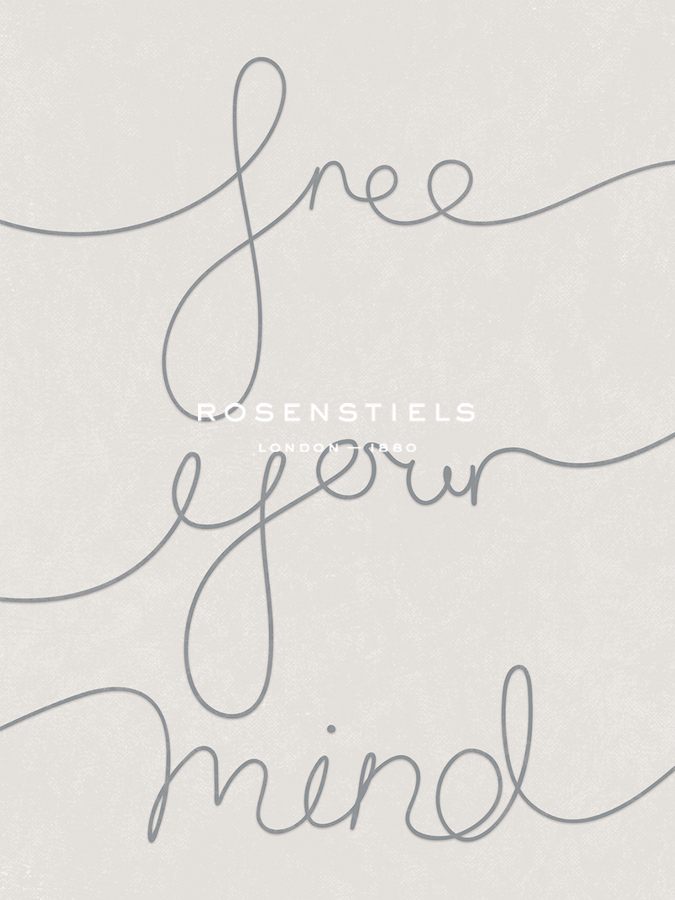 free
ROSENSTIELS
LONDON — 1880
your
mind